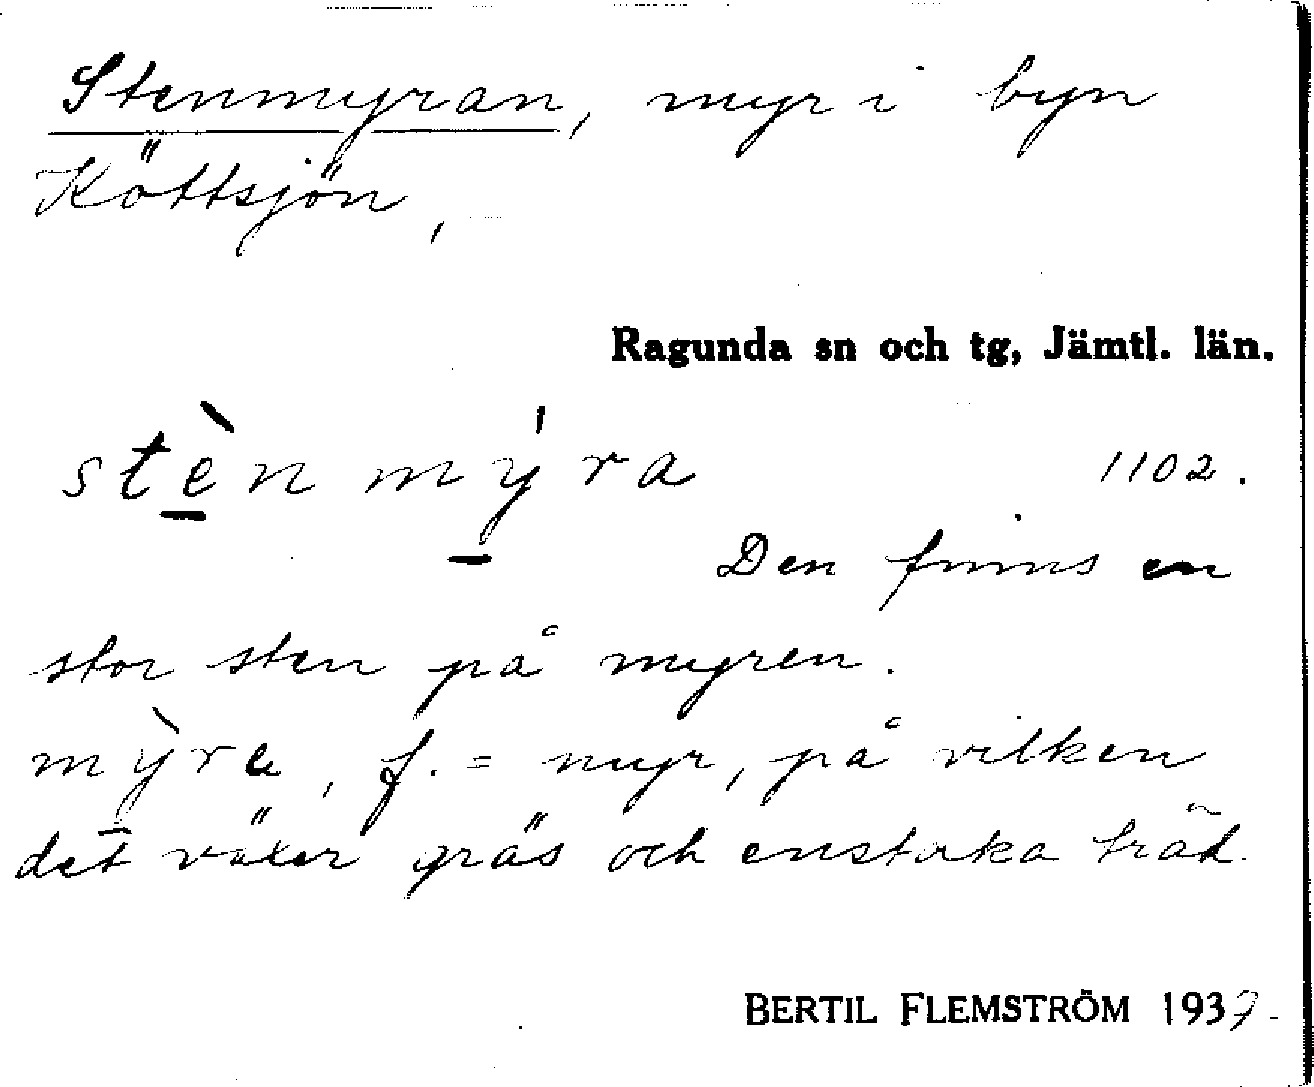 Stenmyran, myr i byn
Köttsjön,
Ragunda sn och tg, Jämtl. län.
stènmýra 1102.
Den finns en
stor sten på myren.
mỳra, f. = myr, på vilken
det växer gräs och enstaka träd.
BERTIL FLEMSTRÖM 1939